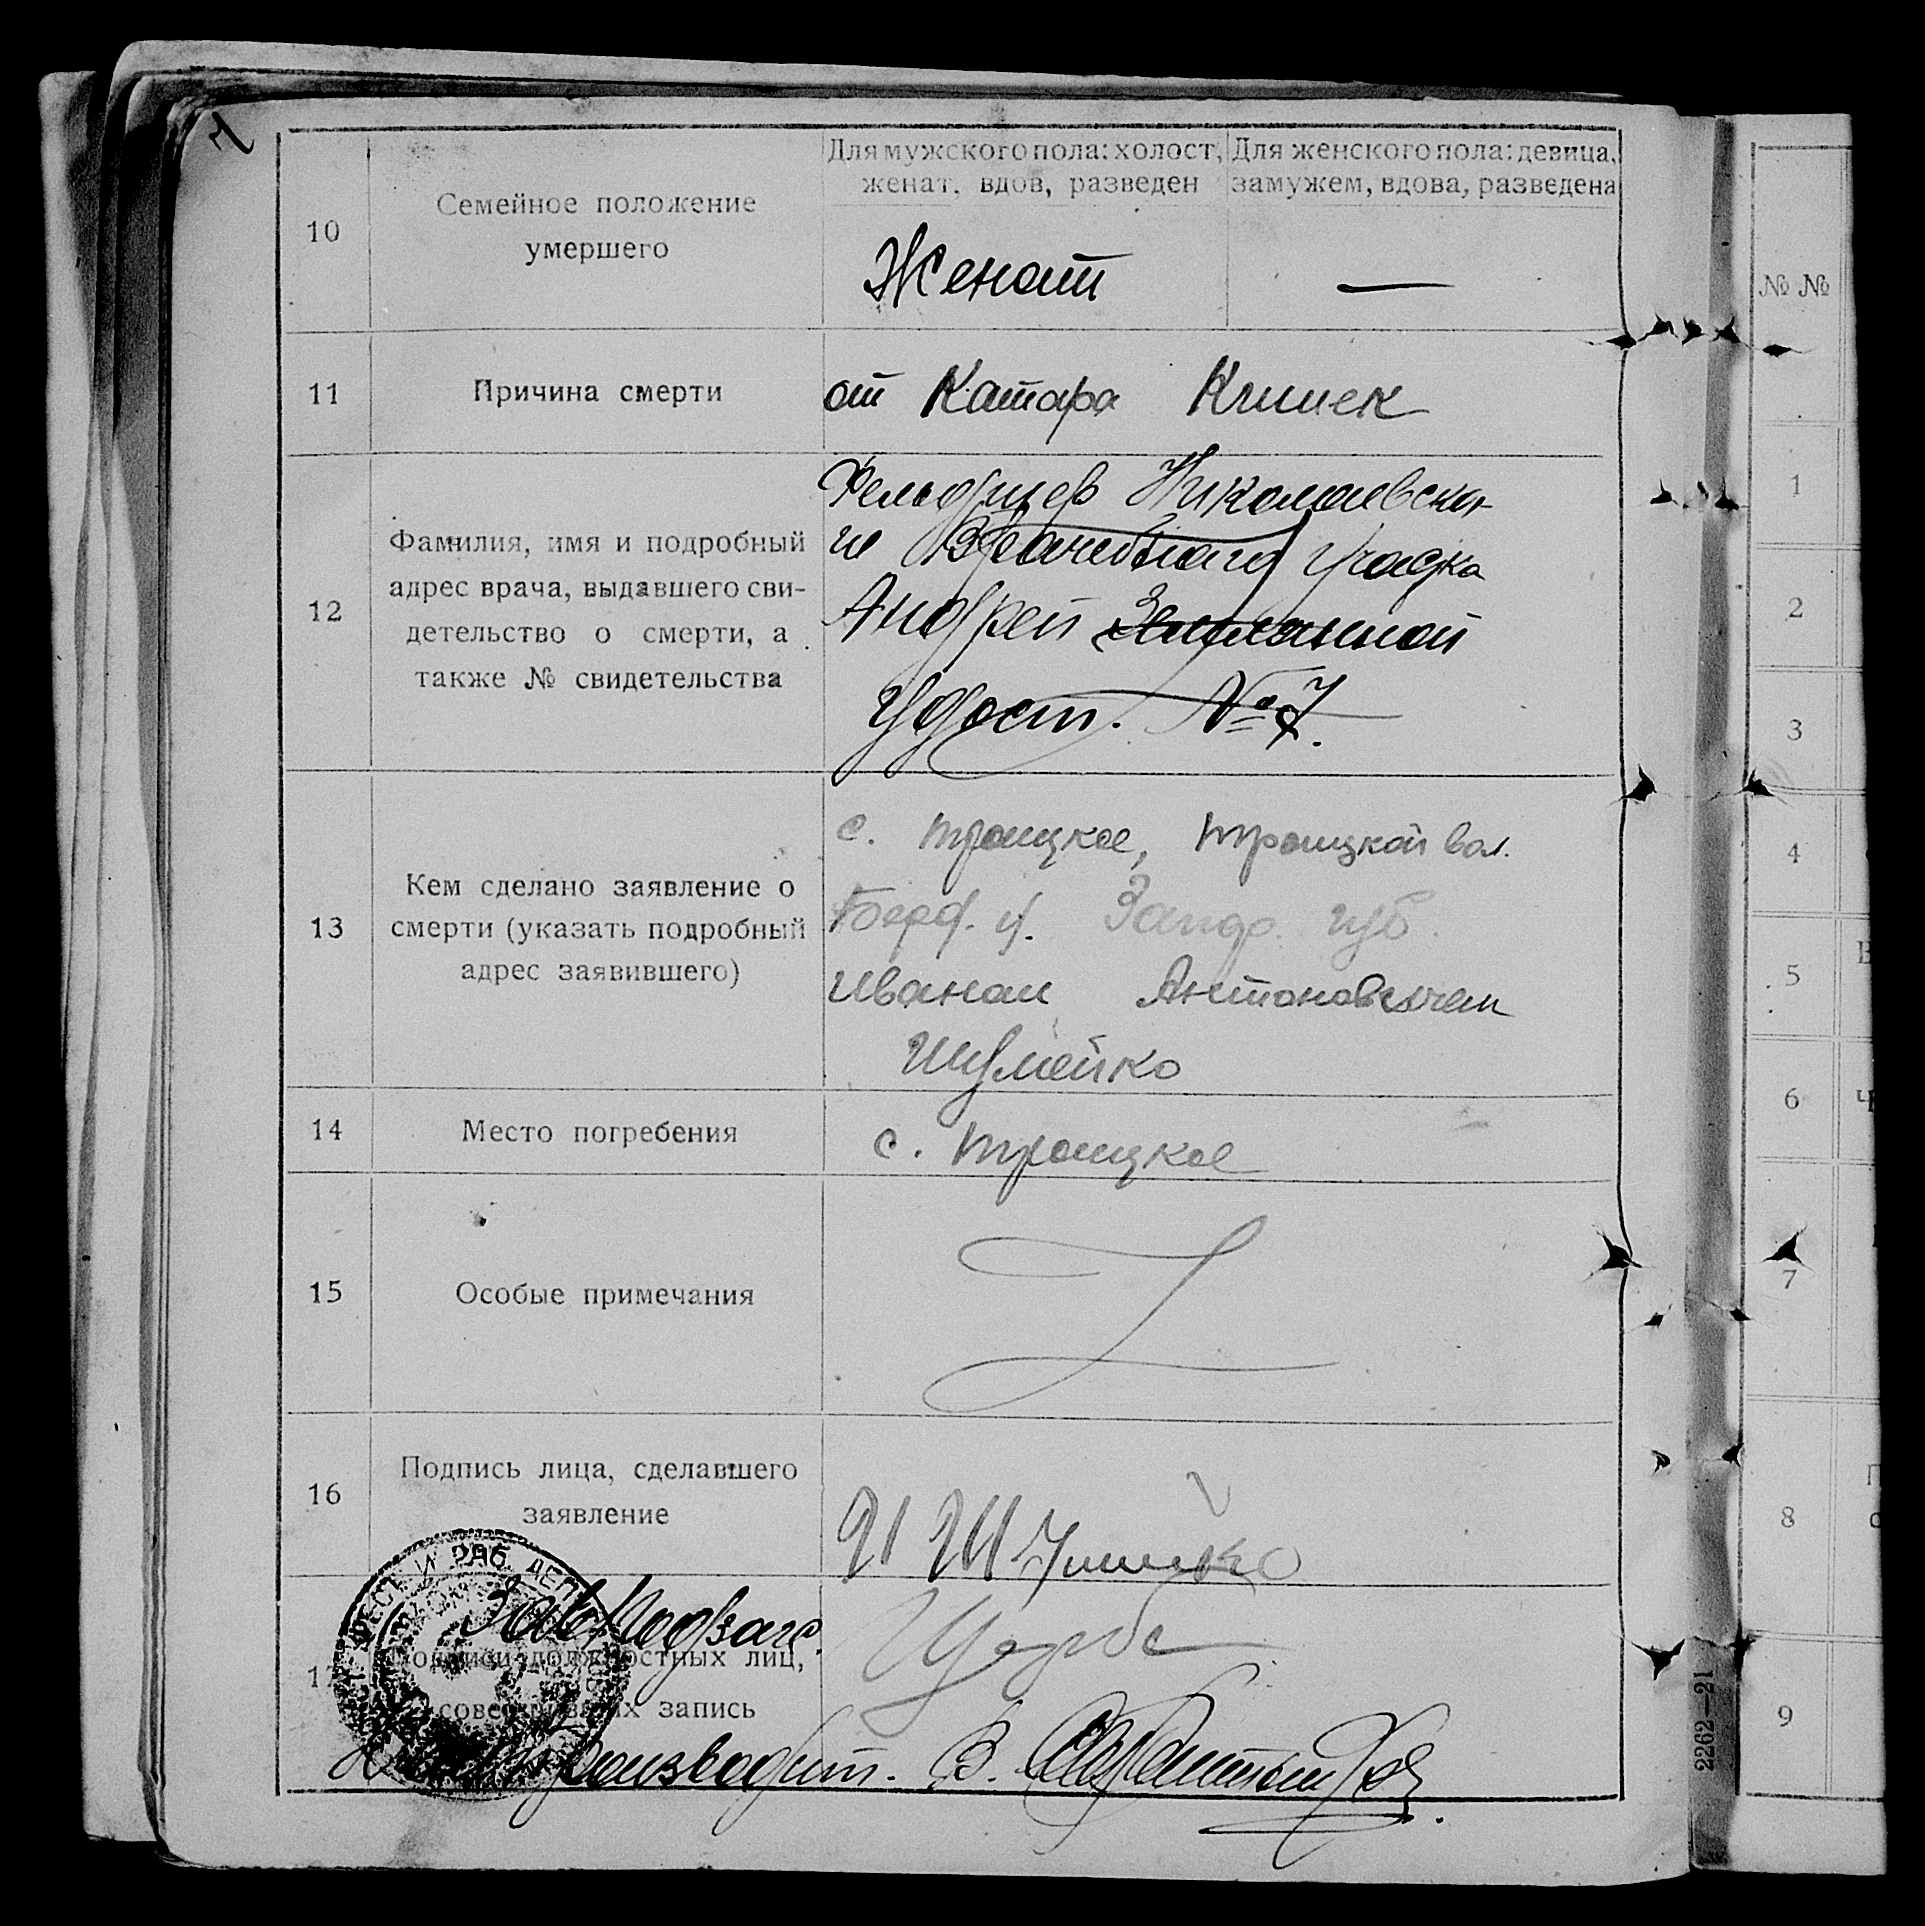 7
Для мужского пола: холост, женат, вдов, разведен
Для женского пола: девица, замужем, вдова, разведена
10 Семейное положение умершего
Женат —
11 Причина смерти
от Катара Кишек
12 Фамилия, имя и подробный адрес врача, выдавшего свидетельство о смерти, а также № свидетельства
Фельдшер Николаевско-
го Врачебного участка
Андрей
Удост. № 7.
13 Кем сделано заявление о смерти (указать подробный адрес заявившего)
с. Троицкое, Троицкой вол.
Бердянск. у. Запор. губ.
Иваном Антоновичем
Шумейко
14 Место погребения
с. Троицкое
15 Особые примечания
16 Подпись лица, сделавшего заявление
И Шумейко
17 Подписи должностных лиц, совершивших запись
Зав. Подзагс.
Щерба
Делопроизводит. В.
2262—21
№ №
1
2
3
4
5
6
7
8
9